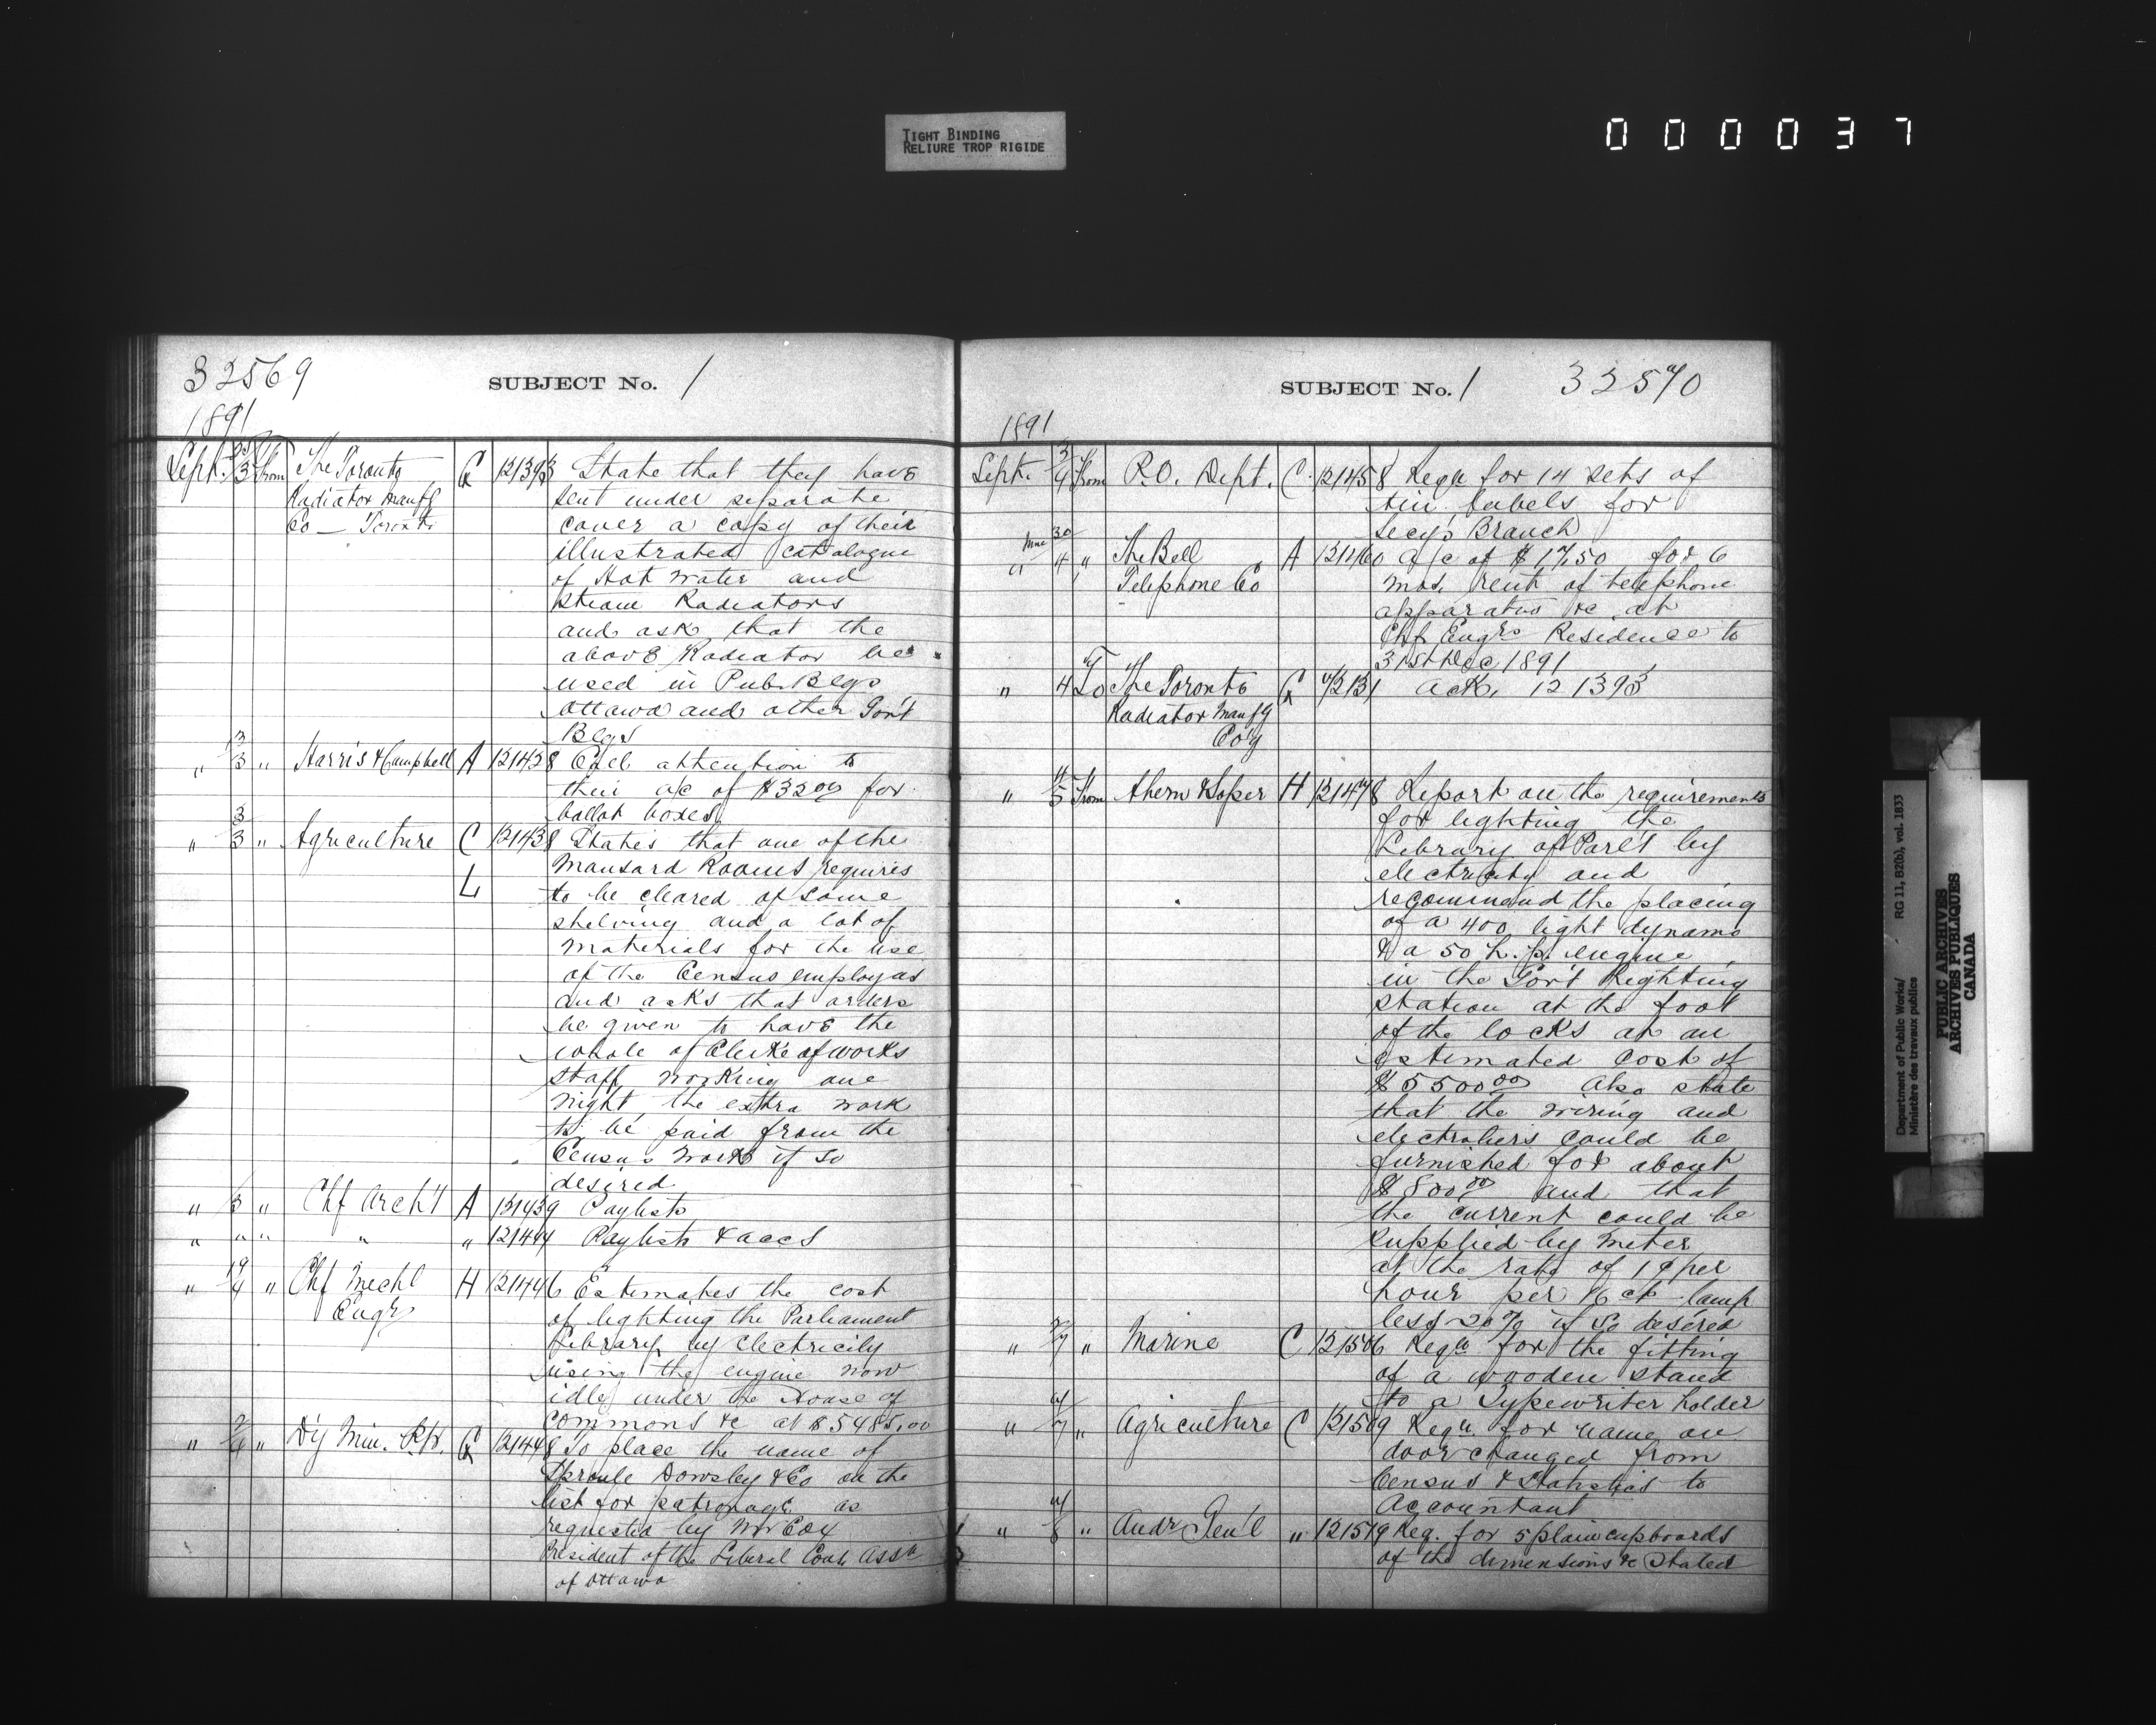 TIGHT BINDING
RELIURE TROP RIGIDE
000037
32569
SUBJECT No. 1
1891
Sept. 3 From The Toronto G 121393 State that they have
Radiator Manfg sent under separate
Co - Toronto cover a copy of their
illustrated catalogue
of Hot Water and
Steam Radiators
and ask that the
above Radiator be
used in Pub. Blgs
Ottawa and other Gov't
Blgs
" 3 " Harris & Campbell A 121428 Call attention to
their a/c of $32.00 for
ballot boxes
" 3/3 " Agriculture C 121438 States that one of the
L Mansard Rooms requires
to be cleared of some
shelving and a lot of
materials for the use
of the Census employas
and asks that orders
be given to have the
whole of Clerk of works
staff working one
night the extra work
to be paid from the
Census work if so
desired
" 3 " Chf Arch't A 121439 Paylists
" " " " " 121444 Paylists & accs
" 4 " Chf Mechl H 121446 Estimates the cost
Engr of lighting the Parliament
Library by Electricity
using the engine now
idle under the House of
Commons &c at $5485.00
" 2/4 " D'y Min. G 121448 To place the name of
Sproule Dowsley & Co on the
list for patronage as
requested by Mr Cox
President of the Liberal Cons Assn
of Ottawa
SUBJECT No. 1
32570
1891
Sept. 3/4 From P.O. Dept. C. 121458 Reqn for 14 sets of
tin labels for
Secy's Branch
" 30/4 " The Bell A 121460 a/c of $17.50 for 6
Telephone Co mos. rent of telephone
apparatus &c at
Chf Engrs Residence to
31st Dec 1891
" 4 To The Toronto G Ack. 121393
Radiator Manfg
Co'y
" 4/5 From Ahern & Soper H 121478 Report on the requirements
for lighting the
Library of Parl't by
electricity and
recommend the placing
of a 400 light dynamo
& a 50 h.p. engine
in the Gov't Lighting
station at the foot
of the locks at an
estimated cost of
$5500.00 Also state
that the wiring and
electroliers could be
furnished for about
$800.00 and that
the current could be
supplied by meter
at the rate of 1¢ per
hour per 16 cp lamp
less 20% if so desired
" 7 " Marine C 121506 Reqn for the fitting
of a wooden stand
to a Typewriter holder
" 7 " Agriculture C 121509 Reqn. for name on
door changed from
Census & Statistics to
Accountant
" 8 " Audr Gen'l " 121519 Req. for 5 plain cupboards
of the dimensions &c stated
Department of Public Works/
Ministère des travaux publics
RG 11, B2(b), vol. 1833
PUBLIC ARCHIVES
ARCHIVES PUBLIQUES
CANADA